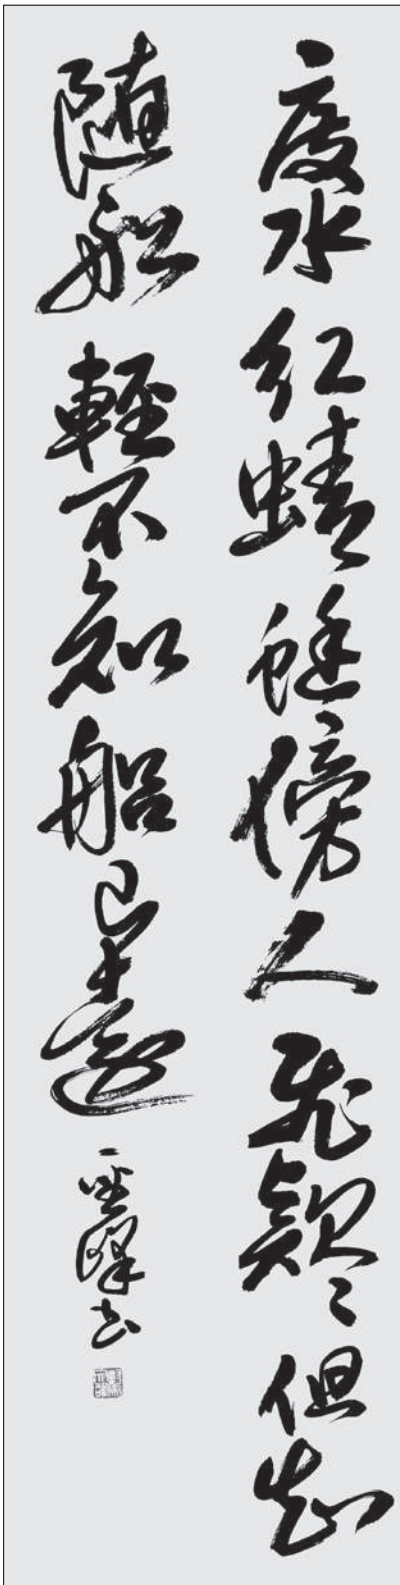 度水紅蜻蜓傍人飛款々但知
随船輕不知船已遠